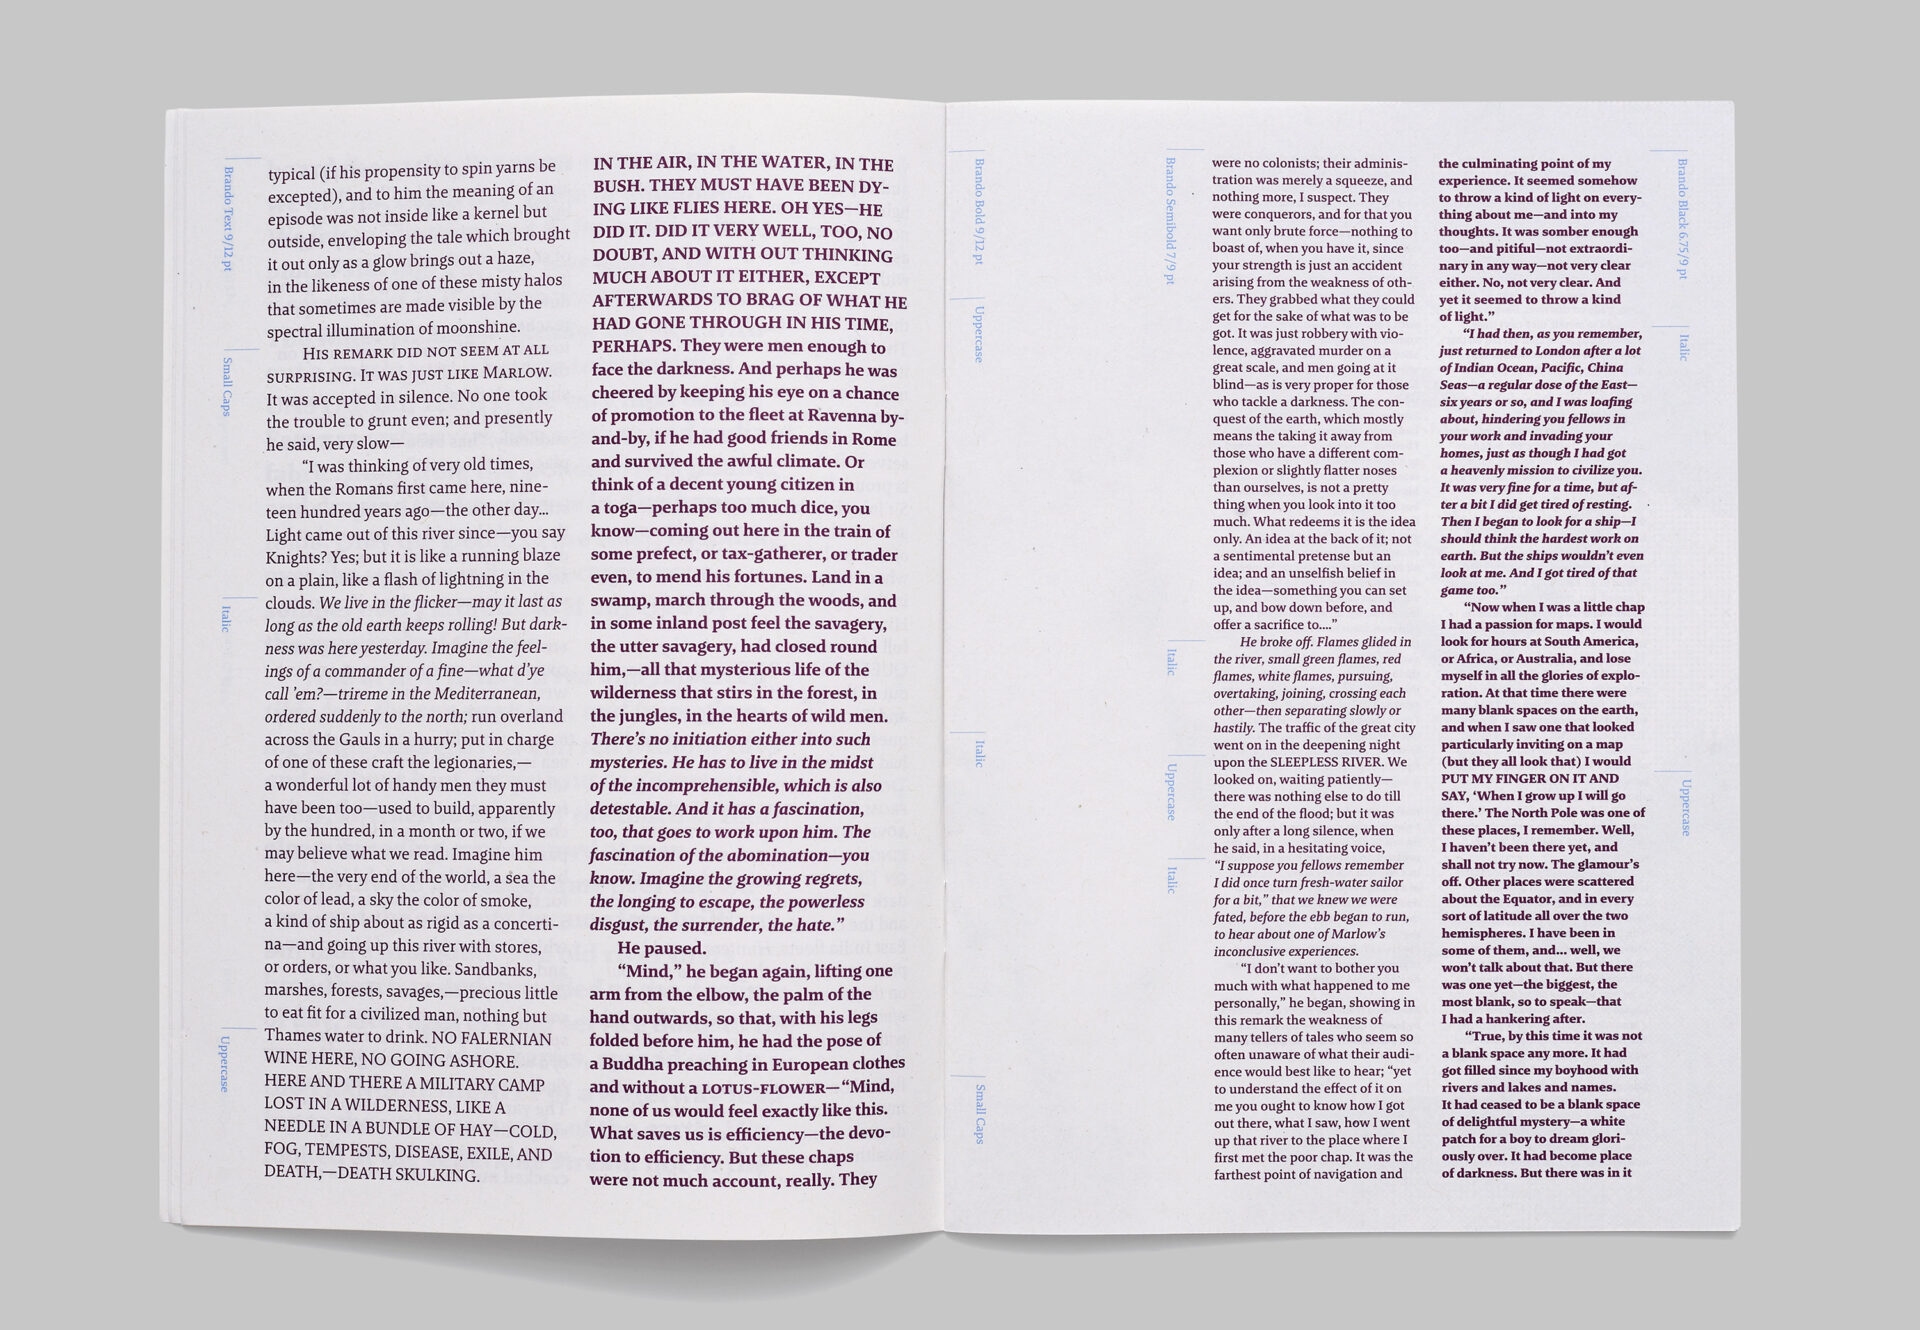 Brando Text 9/12 pt
Small Caps
Italic
Uppercase
typical (if his propensity to spin yarns be
excepted), and to him the meaning of an
episode was not inside like a kernel but
outside, enveloping the tale which brought
it out only as a glow brings out a haze,
in the likeness of one of these misty halos
that sometimes are made visible by the
spectral illumination of moonshine.
His remark did not seem at all
surprising. It was just like Marlow.
It was accepted in silence. No one took
the trouble to grunt even; and presently
he said, very slow—
“I was thinking of very old times,
when the Romans first came here, nine-
teen hundred years ago—the other day...
Light came out of this river since—you say
Knights? Yes; but it is like a running blaze
on a plain, like a flash of lightning in the
clouds. We live in the flicker—may it last as
long as the old earth keeps rolling! But dark-
ness was here yesterday. Imagine the feel-
ings of a commander of a fine—what d’ye
call ’em?—trireme in the Mediterranean,
ordered suddenly to the north; run overland
across the Gauls in a hurry; put in charge
of one of these craft the legionaries,—
a wonderful lot of handy men they must
have been too—used to build, apparently
by the hundred, in a month or two, if we
may believe what we read. Imagine him
here—the very end of the world, a sea the
color of lead, a sky the color of smoke,
a kind of ship about as rigid as a concerti-
na—and going up this river with stores,
or orders, or what you like. Sandbanks,
marshes, forests, savages,—precious little
to eat fit for a civilized man, nothing but
Thames water to drink. NO FALERNIAN
WINE HERE, NO GOING ASHORE.
HERE AND THERE A MILITARY CAMP
LOST IN A WILDERNESS, LIKE A
NEEDLE IN A BUNDLE OF HAY—COLD,
FOG, TEMPESTS, DISEASE, EXILE, AND
DEATH,—DEATH SKULKING.
IN THE AIR, IN THE WATER, IN THE
BUSH. THEY MUST HAVE BEEN DY-
ING LIKE FLIES HERE. OH YES—HE
DID IT. DID IT VERY WELL, TOO, NO
DOUBT, AND WITH OUT THINKING
MUCH ABOUT IT EITHER, EXCEPT
AFTERWARDS TO BRAG OF WHAT HE
HAD GONE THROUGH IN HIS TIME,
PERHAPS. They were men enough to
face the darkness. And perhaps he was
cheered by keeping his eye on a chance
of promotion to the fleet at Ravenna by-
and-by, if he had good friends in Rome
and survived the awful climate. Or
think of a decent young citizen in
a toga—perhaps too much dice, you
know—coming out here in the train of
some prefect, or tax-gatherer, or trader
even, to mend his fortunes. Land in a
swamp, march through the woods, and
in some inland post feel the savagery,
the utter savagery, had closed round
him,—all that mysterious life of the
wilderness that stirs in the forest, in
the jungles, in the hearts of wild men.
There’s no initiation either into such
mysteries. He has to live in the midst
of the incomprehensible, which is also
detestable. And it has a fascination,
too, that goes to work upon him. The
fascination of the abomination—you
know. Imagine the growing regrets,
the longing to escape, the powerless
disgust, the surrender, the hate.”
He paused.
“Mind,” he began again, lifting one
arm from the elbow, the palm of the
hand outwards, so that, with his legs
folded before him, he had the pose of
a Buddha preaching in European clothes
and without a lotus-flower—“Mind,
none of us would feel exactly like this.
What saves us is efficiency—the devo-
tion to efficiency. But these chaps
were not much account, really. They
Brando Bold 9/12 pt
Uppercase
Italic
Small Caps
Brando Semibold 7/9 pt
Italic
Uppercase
Italic
were no colonists; their adminis-
tration was merely a squeeze, and
nothing more, I suspect. They
were conquerors, and for that you
want only brute force—nothing to
boast of, when you have it, since
your strength is just an accident
arising from the weakness of oth-
ers. They grabbed what they could
get for the sake of what was to be
got. It was just robbery with vio-
lence, aggravated murder on a
great scale, and men going at it
blind—as is very proper for those
who tackle a darkness. The con-
quest of the earth, which mostly
means the taking it away from
those who have a different com-
plexion or slightly flatter noses
than ourselves, is not a pretty
thing when you look into it too
much. What redeems it is the idea
only. An idea at the back of it; not
a sentimental pretense but an
idea; and an unselfish belief in
the idea—something you can set
up, and bow down before, and
offer a sacrifice to....”
He broke off. Flames glided in
the river, small green flames, red
flames, white flames, pursuing,
overtaking, joining, crossing each
other—then separating slowly or
hastily. The traffic of the great city
went on in the deepening night
upon the SLEEPLESS RIVER. We
looked on, waiting patiently—
there was nothing else to do till
the end of the flood; but it was
only after a long silence, when
he said, in a hesitating voice,
“I suppose you fellows remember
I did once turn fresh-water sailor
for a bit,” that we knew we were
fated, before the ebb began to run,
to hear about one of Marlow’s
inconclusive experiences.
“I don’t want to bother you
much with what happened to me
personally,” he began, showing in
this remark the weakness of
many tellers of tales who seem so
often unaware of what their audi-
ence would best like to hear; “yet
to understand the effect of it on
me you ought to know how I got
out there, what I saw, how I went
up that river to the place where I
first met the poor chap. It was the
farthest point of navigation and
the culminating point of my
experience. It seemed somehow
to throw a kind of light on every-
thing about me—and into my
thoughts. It was somber enough
too—and pitiful—not extraordi-
nary in any way—not very clear
either. No, not very clear. And
yet it seemed to throw a kind
of light.”
“I had then, as you remember,
just returned to London after a lot
of Indian Ocean, Pacific, China
Seas—a regular dose of the East—
six years or so, and I was loafing
about, hindering you fellows in
your work and invading your
homes, just as though I had got
a heavenly mission to civilize you.
It was very fine for a time, but af-
ter a bit I did get tired of resting.
Then I began to look for a ship—I
should think the hardest work on
earth. But the ships wouldn’t even
look at me. And I got tired of that
game too.”
“Now when I was a little chap
I had a passion for maps. I would
look for hours at South America,
or Africa, or Australia, and lose
myself in all the glories of explo-
ration. At that time there were
many blank spaces on the earth,
and when I saw one that looked
particularly inviting on a map
(but they all look that) I would
PUT MY FINGER ON IT AND
SAY, ‘When I grow up I will go
there.’ The North Pole was one of
these places, I remember. Well,
I haven’t been there yet, and
shall not try now. The glamour’s
off. Other places were scattered
about the Equator, and in every
sort of latitude all over the two
hemispheres. I have been in
some of them, and... well, we
won’t talk about that. But there
was one yet—the biggest, the
most blank, so to speak—that
I had a hankering after.
“True, by this time it was not
a blank space any more. It had
got filled since my boyhood with
rivers and lakes and names.
It had ceased to be a blank space
of delightful mystery—a white
patch for a boy to dream glori-
ously over. It had become place
of darkness. But there was in it
Brando Black 6.75/9 pt
Italic
Uppercase